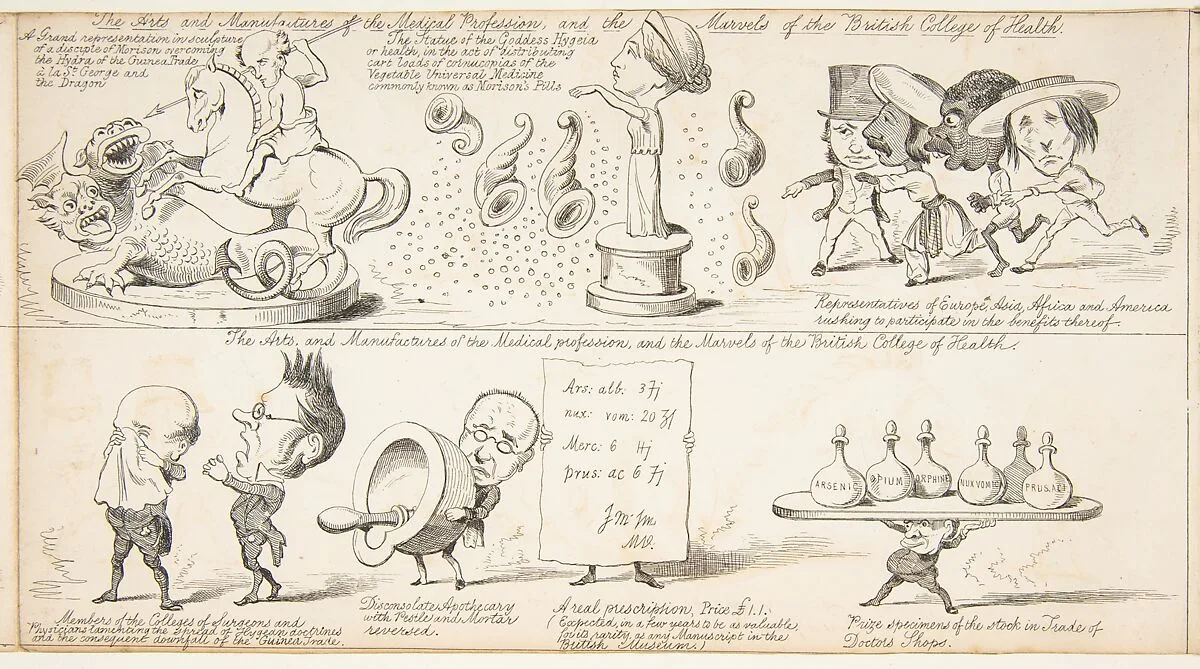 The Arts and Manufactures of the Medical Profession, and the Marvels of the British College of Health.
A Grand representation in sculpture
of a disciple of Morison overcoming
the Hydra of the Guinea Trade
à la St. George and
the Dragon
The Statue of the Goddess Hygeia
or health, in the act of distributing
cart loads of cornucopias of the
Vegetable Universal Medicine
commonly known as Morison's Pills
Representatives of Europe, Asia, Africa and America
rushing to participate in the benefits thereof.
The Arts, and Manufactures of the Medical profession, and the Marvels of the British College of Health.
Ars: alb:
nux: vom: 20
Merc: 6
prus: ac 6
ARSENIC
OPIUM
ORPHINE
NUX VOMIC
PRUS. AC
Members of the Colleges of Surgeons and
Physicians lamenting the spread of Hygean doctrines
and the consequent downfall of the Guinea Trade.
Disconsolate Apothecary
with Pestle and Mortar
reversed.
A real prescription, Price £1.1.
(Expected, in a few years to be as valuable
for its rarity, as any Manuscript in the
British Museum.)
Prize specimens of the stock in Trade of
Doctors Shops.